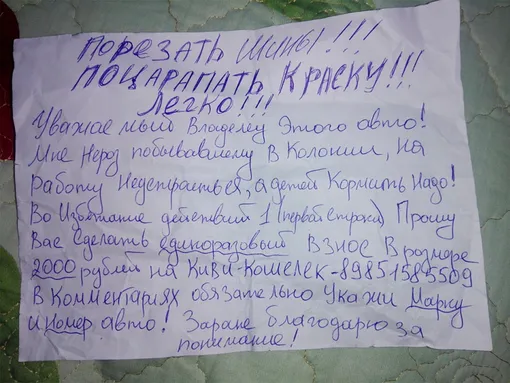 ПОРЕЗАТЬ ШИНЫ!!!
ПОЦАРАПАТЬ КРАСКУ!!!
ЛЕГКО!!!
Уважаемый Владелец Этого авто!
Мне Нераз побывавшему В Колонии, на
работу Неустраиться, а детей Кормить Надо!
Во Избежание действий 1 (первой строки) Прошу
Вас Сделать единоразовый Взнос В размере
2000 рублей на Киви-Кошелек-89851585509
В Комментариях обязательно Укажи Марку
и номер авто! Заране благодарю за
понимание!